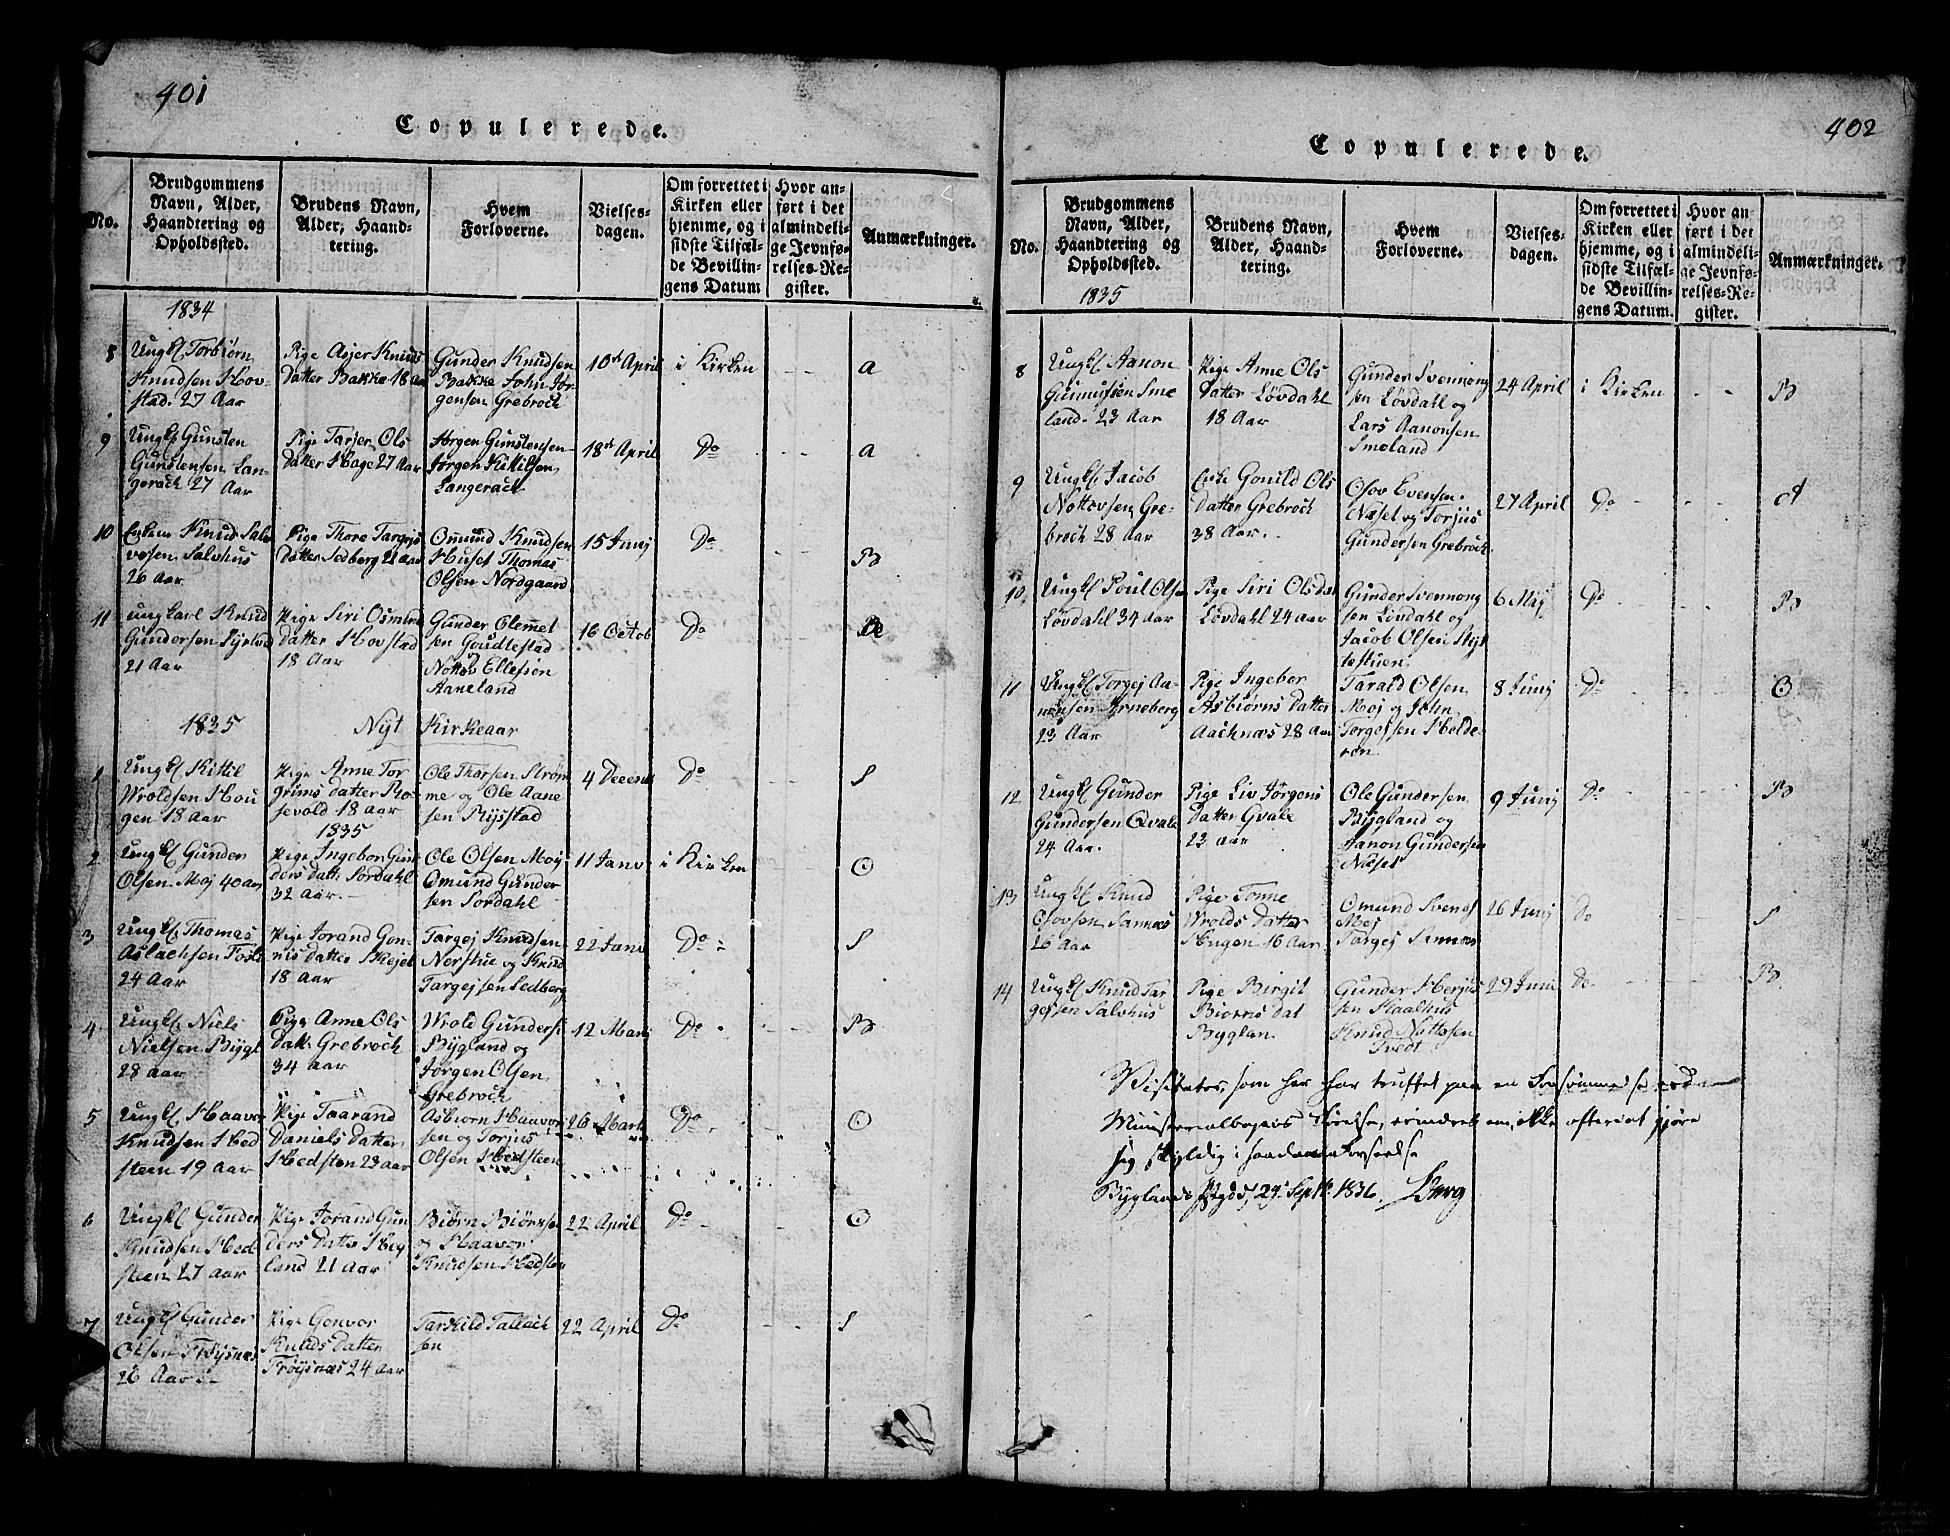 401
Copulerede.
No.
Brudgommens
Navn, Alder,
Haandtering og
Opholdssted.
Brudens Navn,
Alder, Haand-
tering.
Hvem
Forloverne.
Vielses-
dagen.
Om forrettet i
Kirken eller
hjemme, og i
sidste Tilfæl-
de Bevillin-
gens Datum
Hvor an-
ført i det
almindeli-
ge Jevnfø-
relses-Re-
gister.
Anmærkninger.
1834
8
Ungk Torbiørn
Knudsen Hov-
stad. 27 Aar
Pige Asjer Knuds
Datter Bakke 18 Aar
Gunder Knudsen
Bakke John Jør
gensen Grebroch
10de April
i Kirken
a
9
Ungk Gunsten
Gunstensen Lan-
gerach 27 Aar
Pige Tarjer Ols
Datter Hage 27 Aar
Jørgen Gunstensen
Jørgen Kittilsen
Langerach
18de April
Do
a
10
Enkem Knud Salv
vesen Salvhus
26 Aar
Pige Thore Targejs
Datter Sedberg 21 aar
Omund Knudsen
Huset Thomas
Olsen Nordgaard
15 Junj
Do
B
11
ungkarl Knud
Gundersen
21 Aar
Pige Siri Osmund
Datter Hovstad
18 Aar
Gunder Clemet
sen
Nottov Ellefsen
Aaneland
16 Octob
Do
1835 Nyt Kirkeaar
1
Ungk Kittil
Wroldsen Hou
gen 18 Aar
Pige Anne Tor
grims datter Ro-
sevold 18 aar
Ole Thorsen Strøm
me og Ole Aane
sen Rysstad
4 Decemb
Do
S
1835
2
Ungk Gunder
Olsen Moj 40 aar
Pige Ingebor Gun
ders datt: Sordahl
32 aar.-
Ole Olsen Moj
Omund Gunder
sen Sordahl
11 Janv
i Kirken
O
3
Ungk Thomas
Aslachsen
24 Aar
Pige Jorand Gon-
nis datter Skejet
18 aar
Targej Knudsen
Norstue og Knud
Targejsen Sedberg
22 Janv
Do
S
4
Ungk Niels
Nielsen Bygl
28 aar
Pige Anne Ols
Datt: Grebroch
34 aar
Wrold Gunders
Bygland og
Jørgen Olsen
Grebroch
12 Marts
Do
B
5
Ungk Haavor
Knudsen Hed
steen 19 Aar
Pige Taarand
Daniels Datter
Hedsten 23 aar
Asbiørn Haavor
sen og Torjus
Olsen Hedsteen
26 Marts
Do
O
6
Ungk Gunder
Knudsen Hed-
steen 27 aar
Pige Jorand Gun
ders Datter Heg
land 21 Aar
Biørn Biørnsen
og Haavor
Knudsen Hedsten
22 April
Do
O
7
Ungk Gunder
Olsen Frøysnæs
26 Aar
Pige Gonvor
Knuds Datter
Frøysnæs 24 aar
Tarkild Tallach
sen
22 April
Do
S
402
Copulerede.
No.
Brudgommens
Navn, Alder,
Haandtering og
Opholdssted.
Brudens Navn,
Alder, Haand-
tering.
Hvem
Forloverne.
Vielses-
dagen.
Om forrettet i
Kirken eller
hjemme, og i
sidste Tilfæl-
de Bevillin-
gens Datum.
Hvor an-
ført i det
almindeli-
ge Jevnfø-
relses-Re-
gister.
Anmærkninger.
1835
8
Ungk Aanon
Gunnufsen Sme
land. 23 Aar
Pige Anne Ols
Datter Løvdahl
18 Aar
Gunder Svennong
sen Løvdahl og
Lars Aanonsen
Smeland
24 April
i Kirken
B
9
Ungk Jacob
Nottovsen Gre-
broch 28 Aar
Enke Gonild Ols
Datter Grebroch
38 Aar.
Osov Evensen
Næset og Torjus
Gundersen Grebroch
27 April
Do
A
10
Ungk Poul Olsen
Løvdahl 34 aar
Pige Siri Olsdat
Løvdahl 24 aar
Gunder Svennong
sen Løvdahl og
Jacob Olsen
testuen
6 Maj
Do
B
11
Ungk Torgej Aa-
nonsen Arneberg
23 Aar
Pige Ingebor
Asbiørns datter
Aachnæs 28 Aar
Tarald Olsen
Moj og John
Torgejsen Holde-
røn
8 Junj
Do
O
12
Ungk Gunder
Gundersen Qvale
24 Aar.
Pige Liv Jørgens
Datter Qvale
23 aar
Ole Gundersen
Bygland og
Aanon Gundersen
Næset
9 Junj
Do
B
13
Ungk Knud
Osovsen Sannes
26 Aar
Pige Tonne
Wrolds Datter
Hugen 16 Aar
Omund Svends
Moj
Targej Sannæs
26 Junj
Do
S
14
Ungk Knud Tar
gejsen Salvhus
Pige Birgit
Biørns dat
Byglan
Gunder Herjus
sen Staalhus
Knud Nottosen
Tvedt
29 Juni
Do
B
Visitator, som her har truffet paa en Forsømmelse
Ministerialbogens Førelse, erindret om, ikke oftere at gjøre
sig skyldig i saadan Forseelse
Byglands Pgd, 27 Septbr 1836. Berg